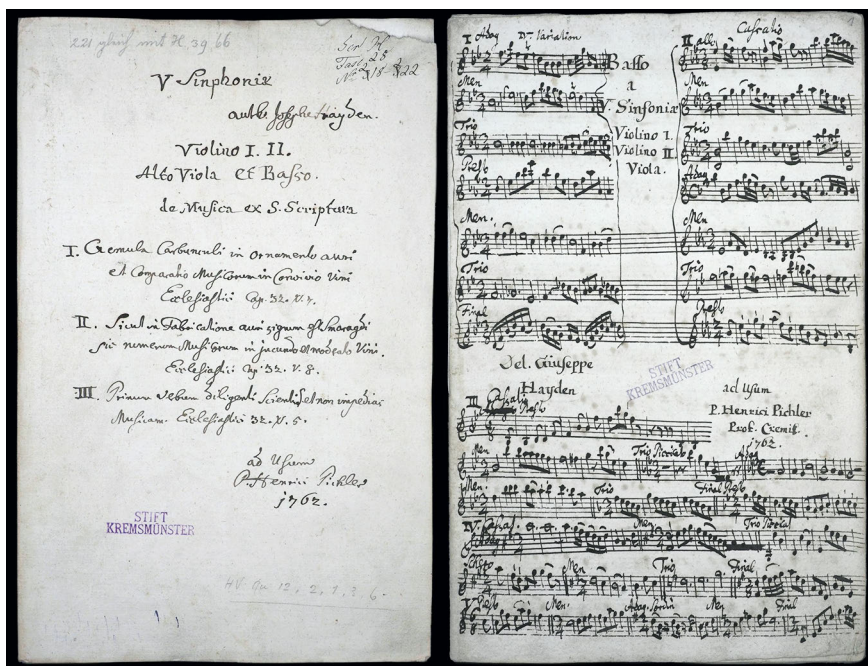 221 gleich mit H. 39. 66
V Sinphoniæ
Hayden.
Violino I. II.
Alto Viola Et Basso.
de Musica ex S. Scriptura
I. Gemula Carbunculi in ornamento auri
et Comparatio Musicorum in Convivio Vini
Ecclesiastici Cap. 32. V. 7.
II. Sicut in Fabricatione auri signum est smaragdi
sic numerus Musicorum in jucundo et moderato Vini.
Ecclesiastici Cap. 32. V. 8.
III. Primum Verbum diligenti Scientia, et non impedias
Musicam. Ecclesiastici 32. V. 5.
ad Usum
P. Henrici Pichler
1762.
STIFT
KREMSMÜNSTER
HV No 12, 2, 1, 3, 6.
I Adag Dto Variation
Men
Trio
Presto
Men.
Trio
Final
Basso
a
V. Sinfoniæ
Violino I.
Violino II.
Viola.
II all. Cassatio
Men
Trio
Adag
Men
Trio
Presto
Del. Giuseppe
Hayden
STIFT
KREMSMÜNSTER
ad Usum
P. Henrici Pichler
Prof. Cremif.
1762.
III Cassatio
Presto
Men Trio Piccolo Adag
Men. Trio Final Presto
IV. Cassat. Men Trio Piccolo
Adag
Men Trio Final
V Presto Men. Adag. Men Final